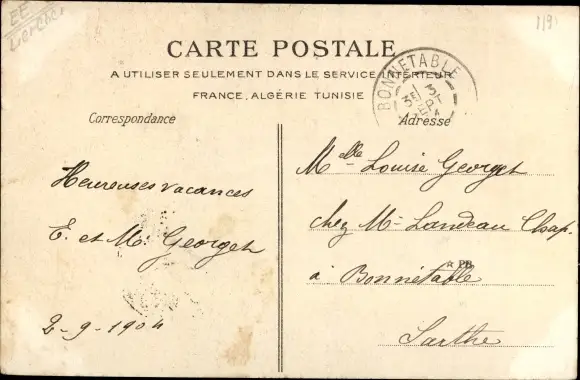 1/9
CARTE POSTALE
A UTILISER SEULEMENT DANS LE SERVICE INTÉRIEUR
FRANCE, ALGÉRIE TUNISIE
BONNÉTABLE
Correspondance
Adresse
Heureuses vacances
E. et M. Georget
2-9-1904
Melle Louise Georget
chez Mr Landeau Chap.
à Bonnétable
☆ PB
Sarthe